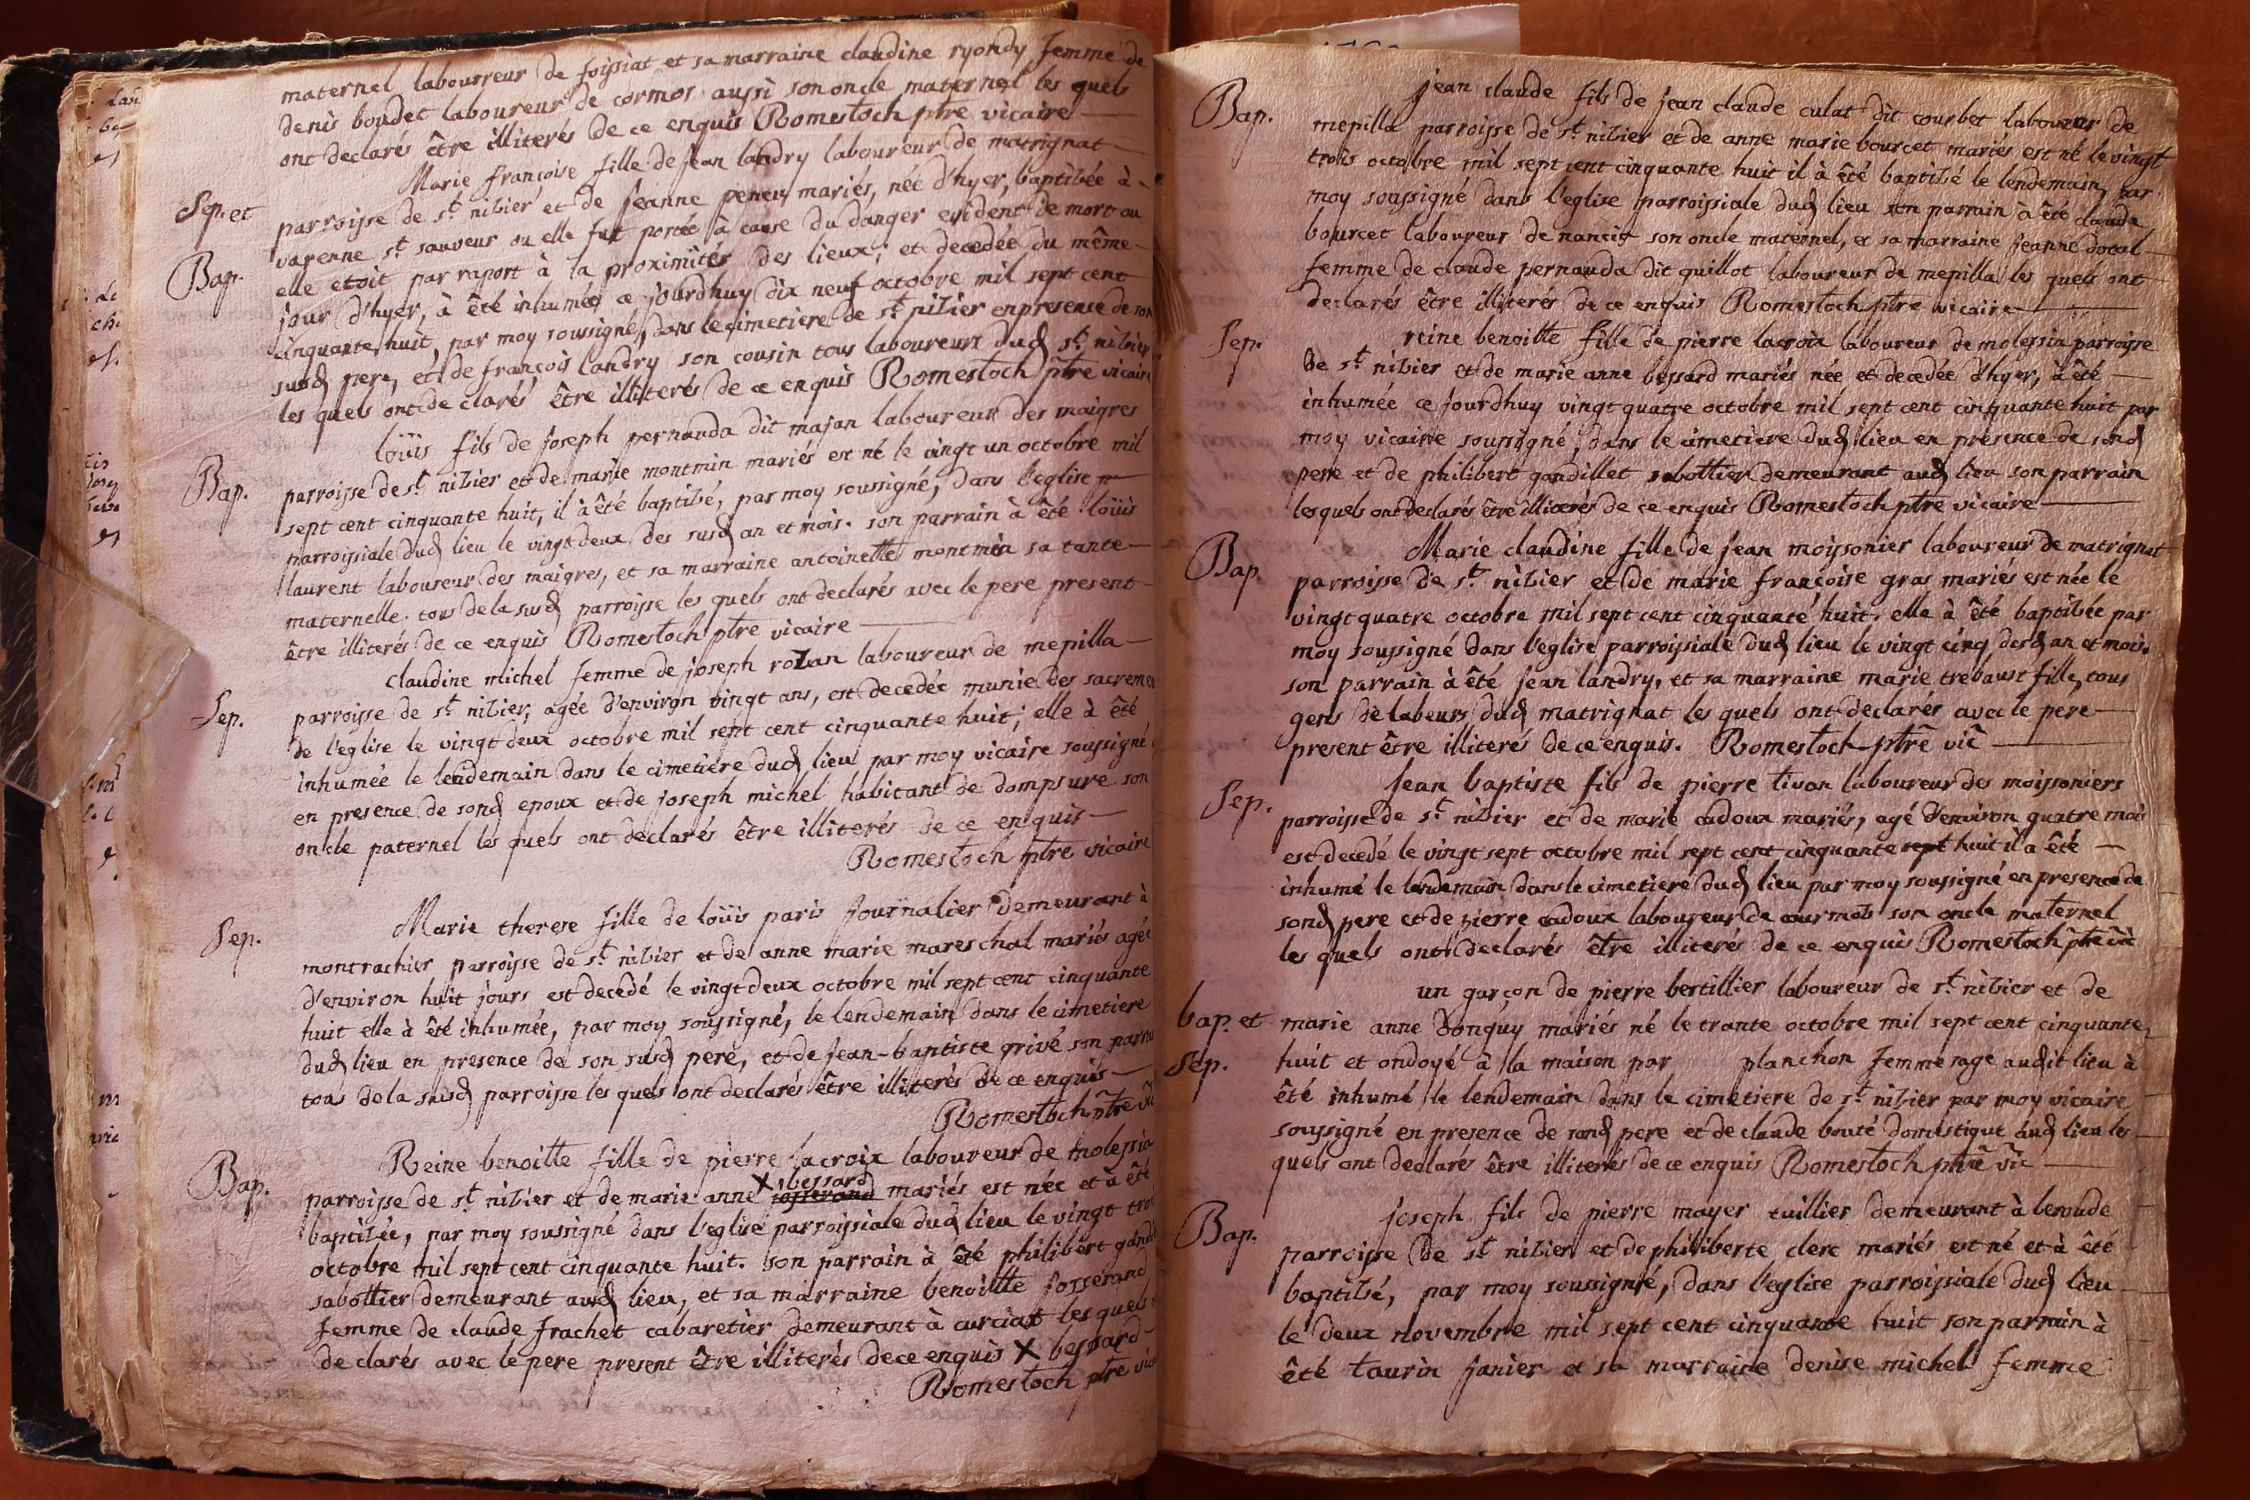 maternel labourreur de foissiat et sa marraine claudine ryondy femme de
denis boudet laboureur de cormos aussi son oncle maternel les quels
ont declarés être illiterés de ce enquis Romestoch ptre vicaire
Sep. et
Bap.
Marie françoise fille de jean landry laboureur de matrignat
parroisse de st nizier et de jeanne mariés, née d'hyer, baptisée à
varenne st sauveur ou elle fut portée à cause du danger evident de mort ou
elle etoit par raport à la proximités des lieux; et decedée du même
jour d'hyer, à été inhumée ce jourdhuy dix neuf octobre mil sept cent
cinquante huit, par moy soussigné, dans le cimetiere de st nizier en presence de son
susd pere, et de françois landry son cousin tous laboureurs dud st nizier
les quels ont de clarés être illiterés de ce enquis Romestoch ptre vicaire
Bap.
loüis fils de joseph pernauda dit majan laboureur des maigres
parroisse de st nizier et de marie montmin mariés est né le vingt un octobre mil
sept cent cinquante huit, il à été baptisé, par moy soussigné, dans l'eglise
parroissiale dud lieu le vingt deux des susd an et mois. son parrain à été loüis
laurent laboureur des maigres, et sa marraine antoinette montmin sa tante
maternelle. tous de la susd parroisse les quels ont declarés avec le pere present
être illiterés de ce enquis Romestoch ptre vicaire
Sep.
claudine michel femme de joseph rozan laboureur de mepilla
parroisse de st nizier, agée d'environ vingt ans, est decedée munie des sacremen
de l'eglise le vingt deux octobre mil sept cent cinquante huit; elle à été
inhumée le lendemain dans le cimetiere dud lieu par moy vicaire soussigné
en presence de sond epoux et de joseph michel habitant de dompsure son
oncle paternel les quels ont declarés être illiterés de ce enquis
Romestoch ptre vicaire
Sep.
Marie therese fille de loüis paris journalier demeurant à
montrachier parroisse de st nizier et de anne marie mareschal mariés agée
d'environ huit jours est decedé le vingt deux octobre mil sept cent cinquante
huit elle à été inhumée, par moy soussigné, le lendemain dans le cimetiere
dud lieu en presence de son susd pere, et de jean-baptiste grivé son parra
tous de la susd parroisse les quels ont declarés être illiterés de ce enquis
Romestoch ptre vic
Bap.
Reine benoitte fille de pierre lacroix laboureur de molessia
X bessard
parroisse de st nizier et de marie anne josserand mariés est née et à été
baptisée, par moy soussigné dans l'eglise parroissiale dud lieu le vingt tro
octobre mil sept cent cinquante huit. son parrain à été philibert gandi
sabottier demeurant aud lieu, et sa marraine benoitte josserand
femme de claude frachet cabaretier demeurant à curciat les quels
de clarés avec le pere present être illiterés de ce enquis X bessard
Romestoch ptre vic
Bap.
jean claude fils de jean claude culat dit courbet laboureur de
mepilla parroisse de st nizier et de anne marie bourcet mariés est né le vingt
trois octobre mil sept cent cinquante huit il à été baptisé le lendemain, par
moy soussigné dans l'eglise parroissiale dud lieu son parrain à été claude
bourcet laboureur de nancie son oncle maternel, et sa marraine jeanne doral
femme de claude pernauda dit guillot laboureur de mepilla les quels ont
declarés être illiterés de ce enquis Romestoch ptre vicaire
Sep.
reine benoitte fille de pierre lacroix laboureur de molessia parroisse
de st nizier et de marie anne bessard mariés née et decedée d'hyer, à été
inhumée ce jourdhuy vingt quatre octobre mil sept cent cinquante huit par
moy vicaire soussigné, dans le cimetiere dud lieu en presence de sond
pere et de philibert gandillet sabottier demeurant aud lieu son parrain
lesquels ont declarés être illiterés de ce enquis Romestoch ptre vicaire
Bap.
Marie claudine fille de jean moissonier laboureur de matrignat
parroisse de st nizier et de marie françoise gras mariés est née le
vingt quatre octobre mil sept cent cinquante huit, elle à été baptisée par
moy soussigné dans l'eglise parroissiale dud lieu le vingt cinq desd an et mois.
son parrain à été jean landry, et sa marraine marie trebaust fille, tous
gens de labeurs dud matrignat les quels ont declarés avec le pere
present être illiterés de ce enquis. Romestoch ptre vic
Sep.
Jean baptiste fils de pierre tivan laboureur des moissoniers
parroisse de st nizier et de marie cadoux mariés, agé d'environ quatre mois
est decedé le vingt sept octobre mil sept cent cinquante sept huit il a été
inhumé le lendemain dans le cimetiere dud lieu par moy soussigné en presence de
sond pere et de pierre cadoux laboureur de courmos son oncle maternel
les quels ont declarés être illiterés de ce enquis Romestoch ptre vic
bap. et
Sep.
un garçon de pierre bertillier laboureur de st nizier et de
marie anne donguy mariés né le trante octobre mil sept cent cinquante
huit et ondoyé à la maison par planchon femme sage audit lieu à
été inhumé le lendemain dans le cimetiere de st nizier par moy vicaire
soussigné en presence de sond pere et de claude bouté domestique dud lieu les
quels ont declarés être illiterés de ce enquis Romestoch ptre vic
Bap.
joseph fils de pierre mayer tuillier demeurant à leroude
parroisse de st nizier et de philiberte clerc mariés est né et à été
baptisé, par moy soussigné, dans l'eglise parroissiale dud lieu
le deux novembre mil sept cent cinquante huit son parrain à
été taurin janier et sa marraine denise michel femme